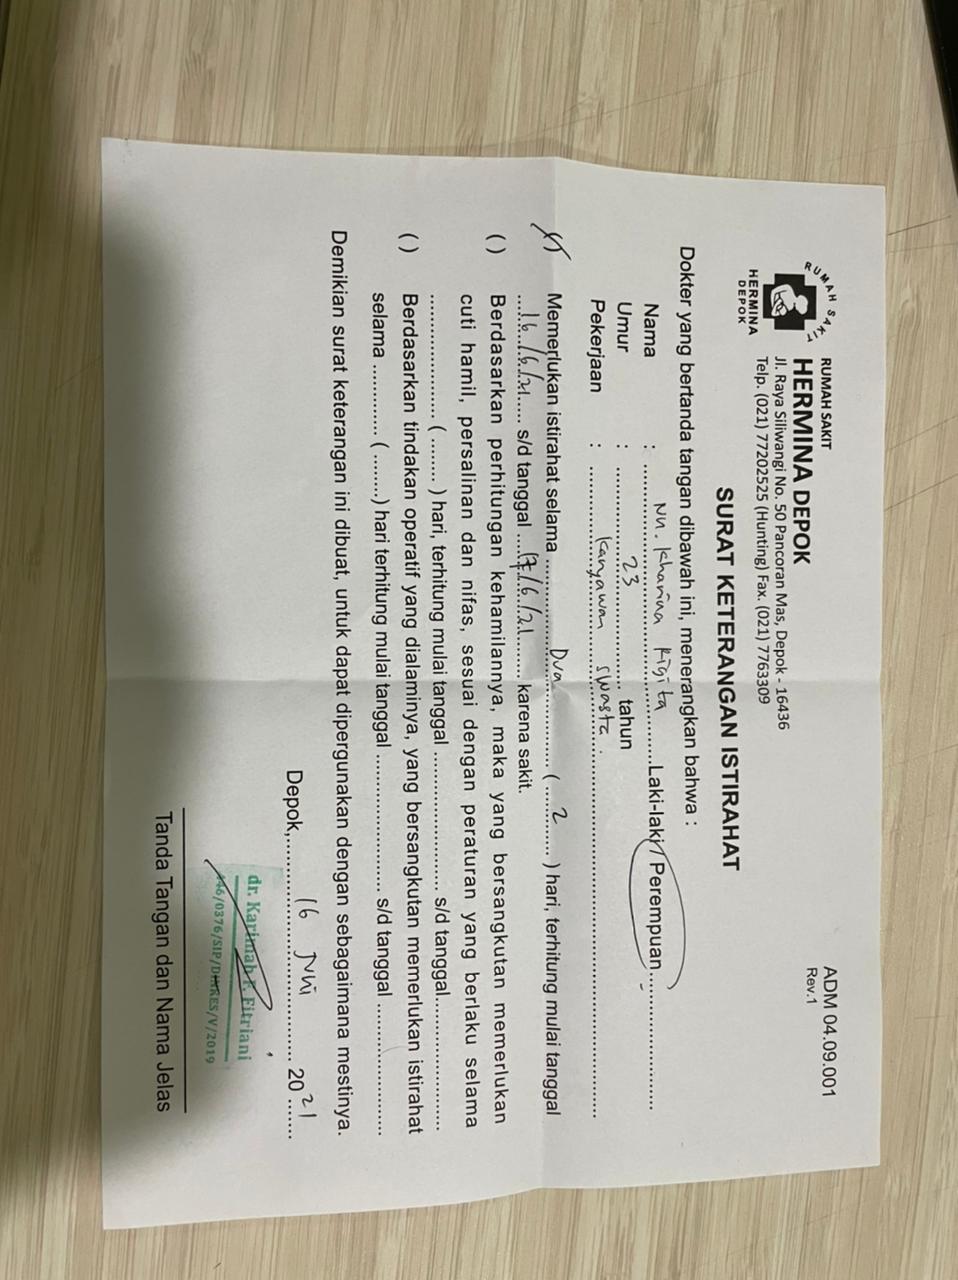 RUMAH SAKIT
HERMINA
DEPOK
RUMAH SAKIT
HERMINA DEPOK
Jl. Raya Siliwangi No. 50 Pancoran Mas, Depok - 16436
Telp. (021) 77202525 (Hunting) Fax. (021) 7763309
ADM 04.09.001
Rev.1
SURAT KETERANGAN ISTIRAHAT
Dokter yang bertanda tangan dibawah ini, menerangkan bahwa :
Nama : Nn. Kharina Rigita Laki-laki / Perempuan
Umur : 23 tahun
Pekerjaan : Karyawan swasta
Memerlukan istirahat selama Dua ( 2 ) hari, terhitung mulai tanggal
16/6/21 s/d tanggal 17/6/21 karena sakit.
( ) Berdasarkan perhitungan kehamilannya, maka yang bersangkutan memerlukan
cuti hamil, persalinan dan nifas, sesuai dengan peraturan yang berlaku selama
.................... ( ........ ) hari, terhitung mulai tanggal .................... s/d tanggal....................
( ) Berdasarkan tindakan operatif yang dialaminya, yang bersangkutan memerlukan istirahat
selama ............ ( ........) hari terhitung mulai tanggal .................... s/d tanggal ....................
Demikian surat keterangan ini dibuat, untuk dapat dipergunakan dengan sebagaimana mestinya.
Depok, 16 Juni 2021
dr. Karimah F. Fitriani
446/0376/SIP/DINKES/V/2019
Tanda Tangan dan Nama Jelas